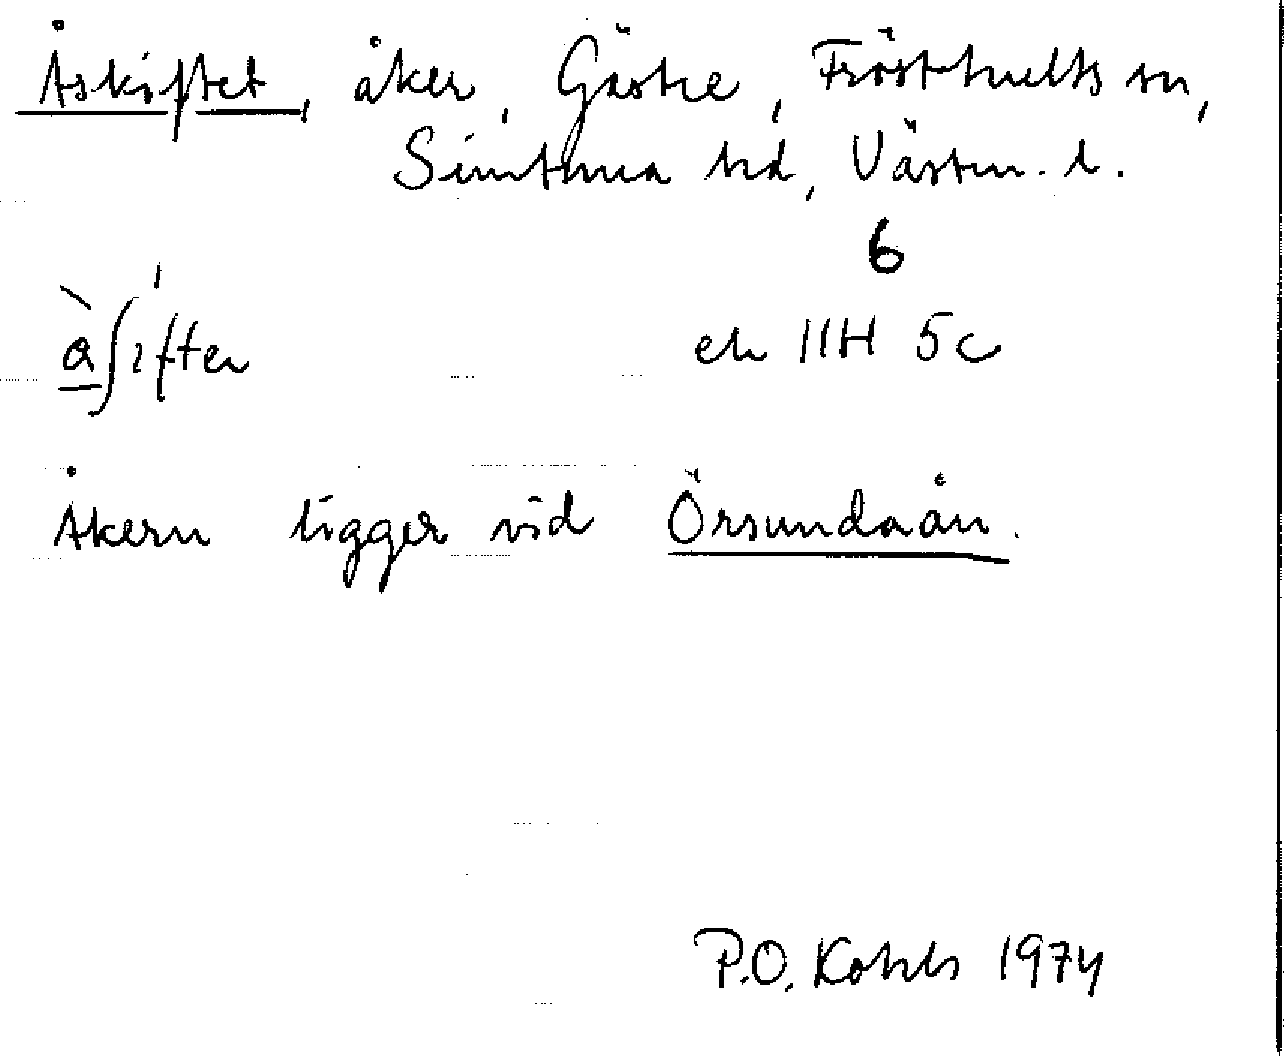 Åskiftet, åker, Gästre, Frösthults sn,
Simtuna hd, Västm. l.
6
ek 11H 5c
Åkern ligger vid Örsundaån.
P.O. Kohls 1974